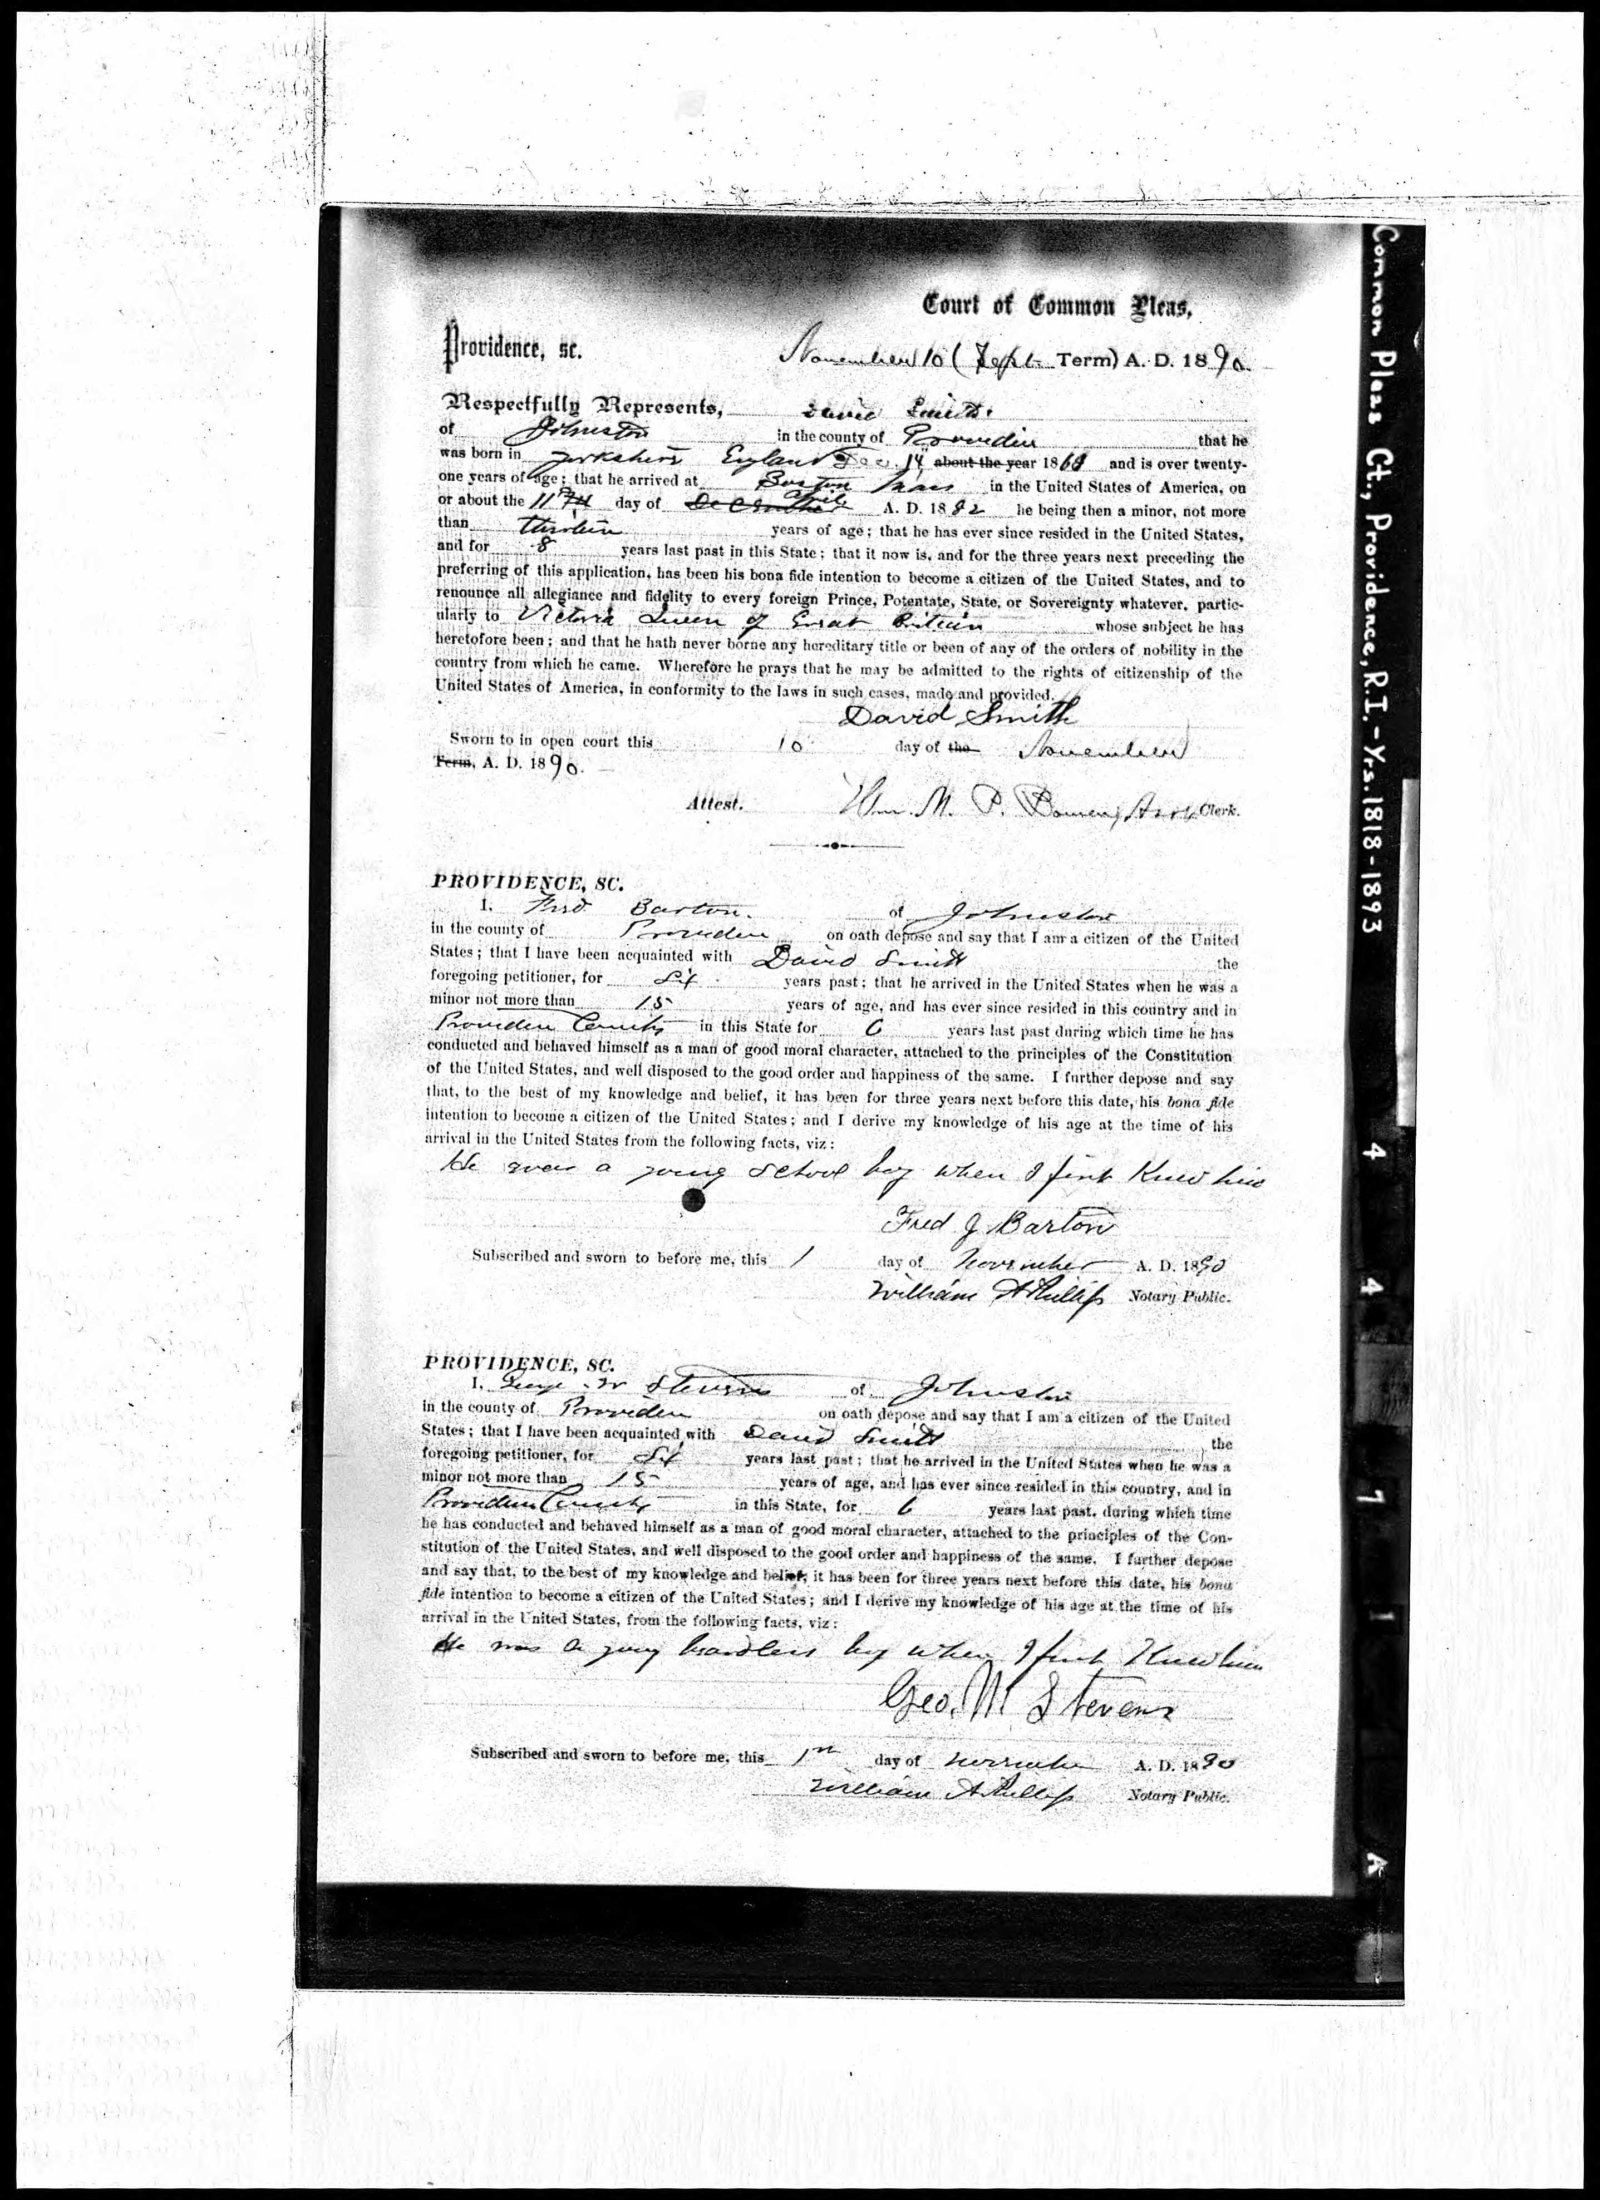 Court of Common Pleas,
Providence, sc.
November 10 ( Sept. Term) A. D. 1890.
Respectfully Represents, David Smith.
of Johnston in the county of Providence that he
was born in Yorkshire England Dec. 14 about the year 1868 and is over twenty-
one years of age; that he arrived at Boston Mass in the United States of America, on
or about the 11th day of December April A. D. 1882 he being then a minor, not more
than thirteen years of age; that he has ever since resided in the United States,
and for 8 years last past in this State; that it now is, and for the three years next preceding the
preferring of this application, has been his bona fide intention to become a citizen of the United States, and to
renounce all allegiance and fidelity to every foreign Prince, Potentate, State, or Sovereignty whatever, partic-
ularly to Victoria Queen of Great Britain whose subject he has
heretofore been; and that he hath never borne any hereditary title or been of any of the orders of nobility in the
country from which he came. Wherefore he prays that he may be admitted to the rights of citizenship of the
United States of America, in conformity to the laws in such cases, made and provided.
David Smith
Sworn to in open court this 10 day of the November
Term, A. D. 1890.
Attest. Wm. M. P. Bowen, Asst Clerk.
PROVIDENCE, SC.
I. Fred Barton. of Johnston
in the county of Providence on oath depose and say that I am a citizen of the United
States; that I have been acquainted with David Smith the
foregoing petitioner, for Six years past; that he arrived in the United States when he was a
minor not more than 15 years of age, and has ever since resided in this country and in
Providence County in this State for 6 years last past during which time he has
conducted and behaved himself as a man of good moral character, attached to the principles of the Constitution
of the United States, and well disposed to the good order and happiness of the same. I further depose and say
that, to the best of my knowledge and belief, it has been for three years next before this date, his bona fide
intention to become a citizen of the United States; and I derive my knowledge of his age at the time of his
arrival in the United States from the following facts, viz:
He was a young School boy when I first Knew him
Fred J Barton
Subscribed and sworn to before me, this 1 day of November A. D. 1890
William A Phillips Notary Public.
PROVIDENCE, SC.
I. George W Stevens of Johnston
in the county of Providence on oath depose and say that I am a citizen of the United
States; that I have been acquainted with David Smith the
foregoing petitioner, for Six years last past; that he arrived in the United States when he was a
minor not more than 15 years of age, and has ever since resided in this country, and in
Providence County in this State, for 6 years last past, during which time
he has conducted and behaved himself as a man of good moral character, attached to the principles of the Con-
stitution of the United States, and well disposed to the good order and happiness of the same. I further depose
and say that, to the best of my knowledge and belief, it has been for three years next before this date, his bona
fide intention to become a citizen of the United States; and I derive my knowledge of his age at the time of his
arrival in the United States, from the following facts, viz:
He was a young beardless boy when I first Knew him
Geo. M Stevens
Subscribed and sworn to before me, this 1st day of November A. D. 1890
William A Phillips Notary Public.
Common Pleas Ct., Providence, R.I. - Yrs. 1818-1893
4 4 7 1 A